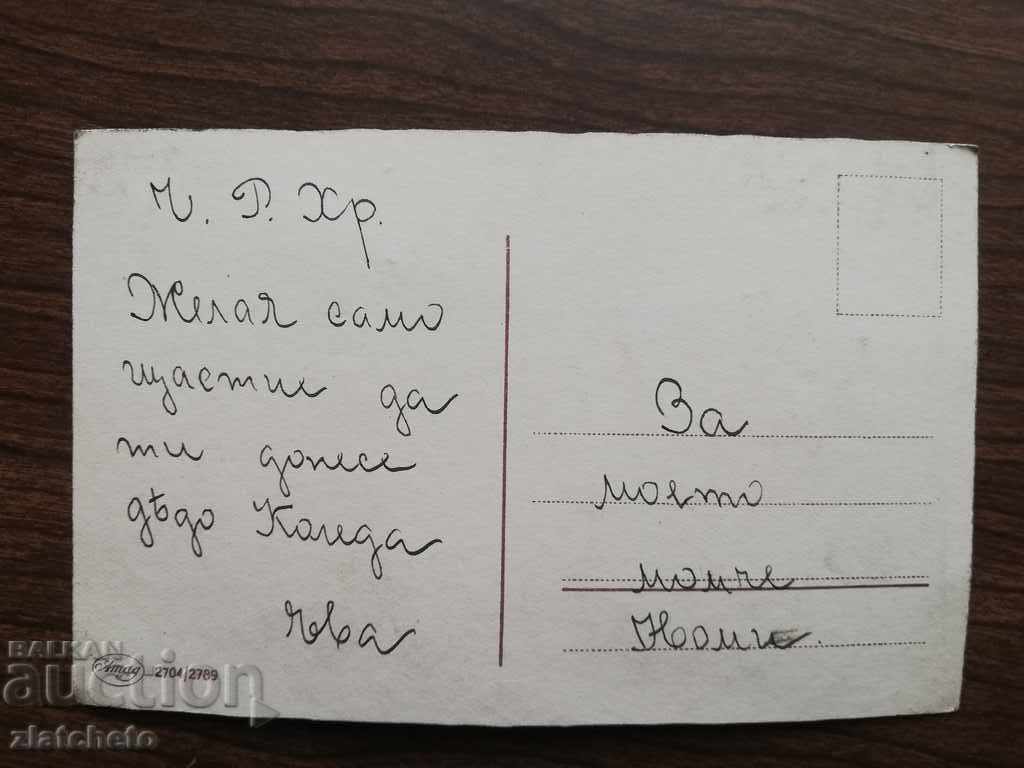 Ч. Р. Хр.
Желая само
щастие да
ти донесе
дѣдо Коледа
За
моето
момче
Amag 2704/2789
BALKAN
auction
zlatcheto